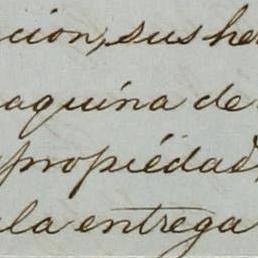 cion, sus he
aquina de
propiédad,
la entrega